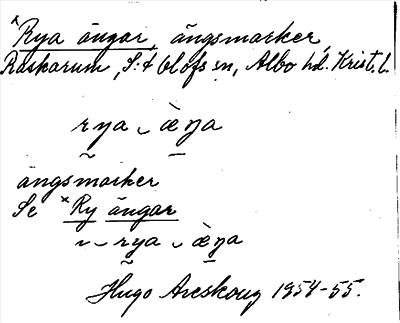 ×Rya ängar, ängsmarker,
Raskarum, S:t Olofs sn, Albo hd. Krist. l.
rya ‿ æ̀ŋa
ängsmarker
Se ×Ry ängar
rya ‿ æ̀ŋa
Hugo Areskoug 1954-55.